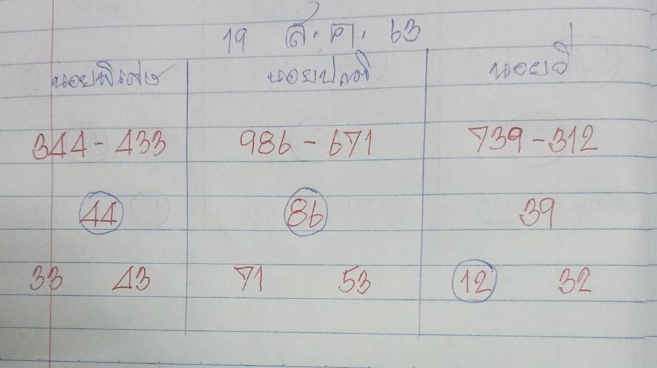 19 ส.ค. 63
นอยพิเศษ นอยปกติ นอยวี
344-433 986-671 739-312
44 86 39
33 43 71 53 12 32